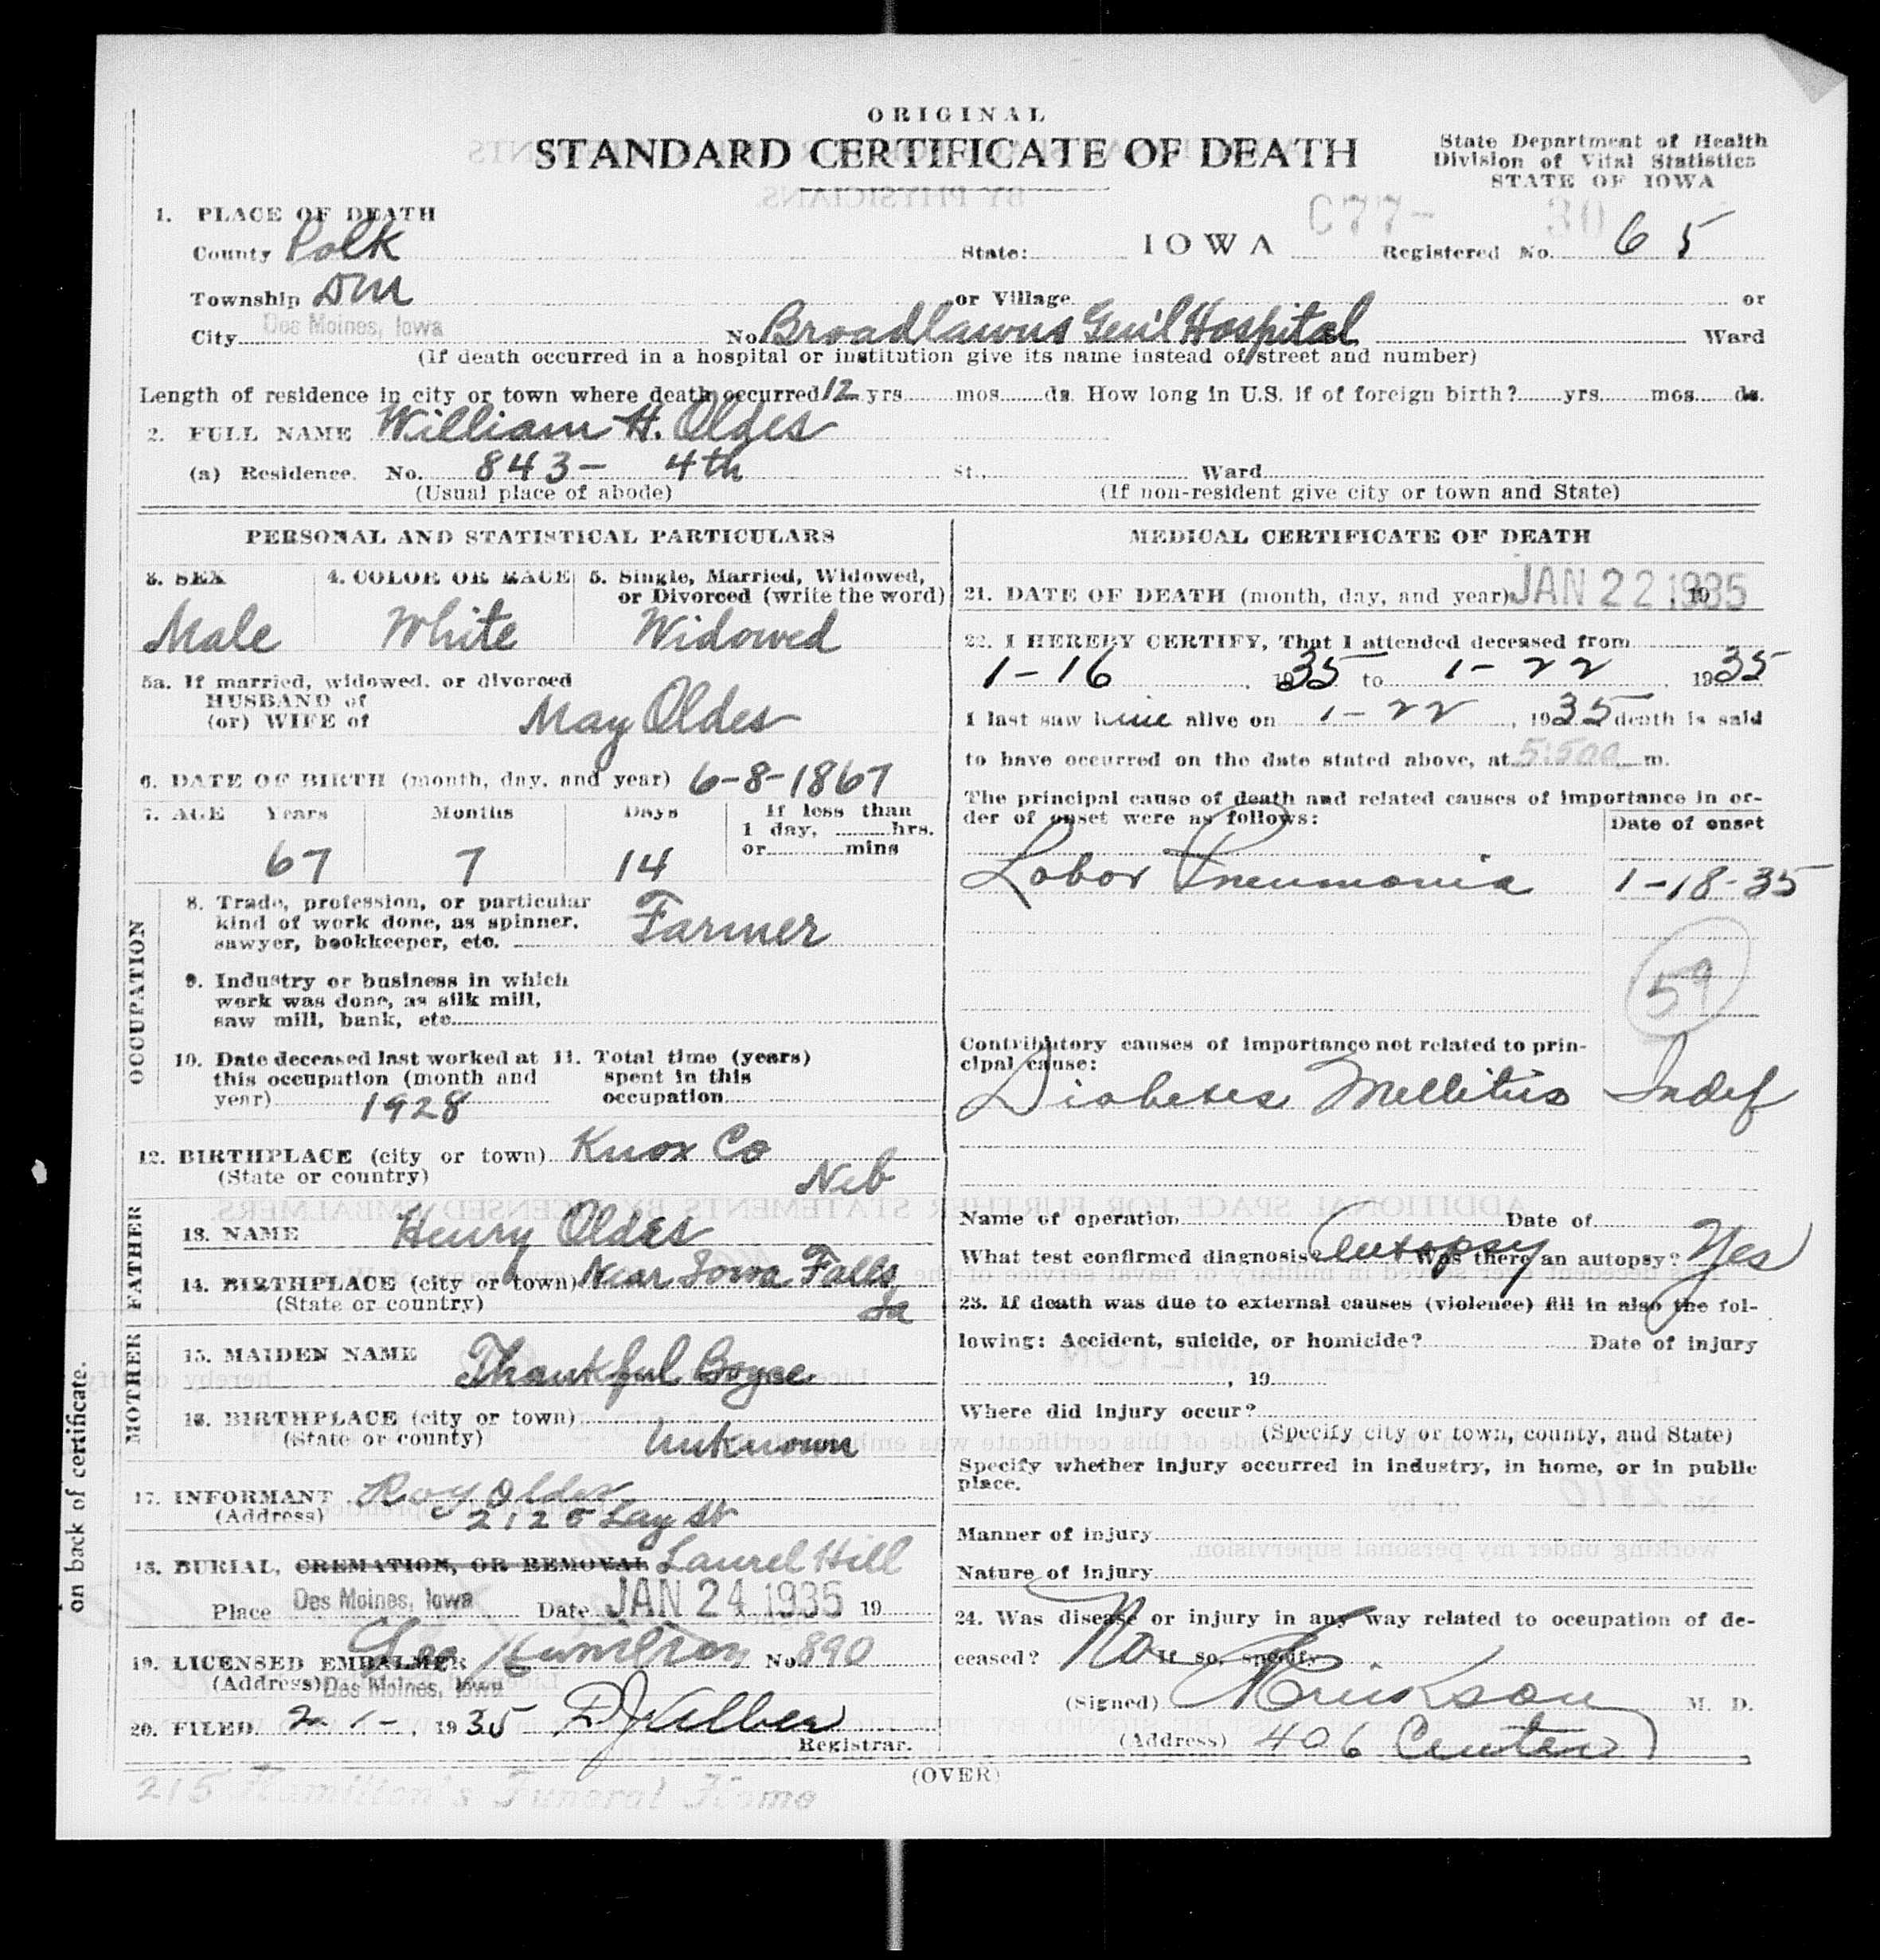 ORIGINAL
STANDARD CERTIFICATE OF DEATH
State Department of Health
Division of Vital Statistics
STATE OF IOWA
C77- 30
1. PLACE OF DEATH
County Polk State: IOWA Registered No. 65
Township DM or Village or
City Des Moines, Iowa No. Broadlawns Gen'l Hospital Ward
(If death occurred in a hospital or institution give its name instead of street and number)
Length of residence in city or town where death occurred 12 yrs. mos. ds. How long in U.S. if of foreign birth? yrs. mos. ds.
2. FULL NAME William H. Oldes
(a) Residence. No. 843- 4th St., Ward
(Usual place of abode) (If non-resident give city or town and State)
PERSONAL AND STATISTICAL PARTICULARS
3. SEX 4. COLOR OR RACE 5. Single, Married, Widowed,
or Divorced (write the word)
Male White Widowed
5a. If married, widowed, or divorced
HUSBAND of
(or) WIFE of May Oldes
6. DATE OF BIRTH (month, day, and year) 6-8-1867
7. AGE Years Months Days If less than
1 day, hrs.
or mins
67 7 14
OCCUPATION
8. Trade, profession, or particular
kind of work done, as spinner,
sawyer, bookkeeper, etc. Farmer
9. Industry or business in which
work was done, as silk mill,
saw mill, bank, etc.
10. Date deceased last worked at 11. Total time (years)
this occupation (month and spent in this
year) 1928 occupation
12. BIRTHPLACE (city or town) Knox Co
(State or country) Neb
FATHER
13. NAME Henry Oldes
14. BIRTHPLACE (city or town) Near Iowa Falls
(State or country) Ia
MOTHER
15. MAIDEN NAME Thankful Boyce
16. BIRTHPLACE (city or town)
(State or county) Unknown
17. INFORMANT Roy Oldes
(Address) 2120 Lay St
18. BURIAL, CREMATION, OR REMOVAL Laurel Hill
Place Des Moines, Iowa Date JAN 24 1935 19
19. LICENSED EMBALMER Lee Hamilton No. 890
(Address) Des Moines, Iowa
20. FILED 2-1-, 1935
Registrar.
on back of certificate.
MEDICAL CERTIFICATE OF DEATH
21. DATE OF DEATH (month, day, and year) JAN 22 1935 19
22. I HEREBY CERTIFY, That I attended deceased from
1-16, 1935 to 1-22, 1935
I last saw him alive on 1-22, 1935 death is said
to have occurred on the date stated above, at m.
The principal cause of death and related causes of importance in or-
der of onset were as follows: Date of onset
Lobar Pneumonia 1-18-35
59
Contributory causes of importance not related to prin-
cipal cause:
Diabetes Mellitus Indef
Name of operation Date of
What test confirmed diagnosis? Autopsy Was there an autopsy? Yes
23. If death was due to external causes (violence) fill in also the fol-
lowing: Accident, suicide, or homicide? Date of injury
, 19
Where did injury occur?
(Specify city or town, county, and State)
Specify whether injury occurred in industry, in home, or in public
place.
Manner of injury
Nature of injury
24. Was disease or injury in any way related to occupation of de-
ceased? No If so, specify
(Signed) Erikson M. D.
(Address) 406 Center
(OVER)
215 Hamilton's Funeral Home